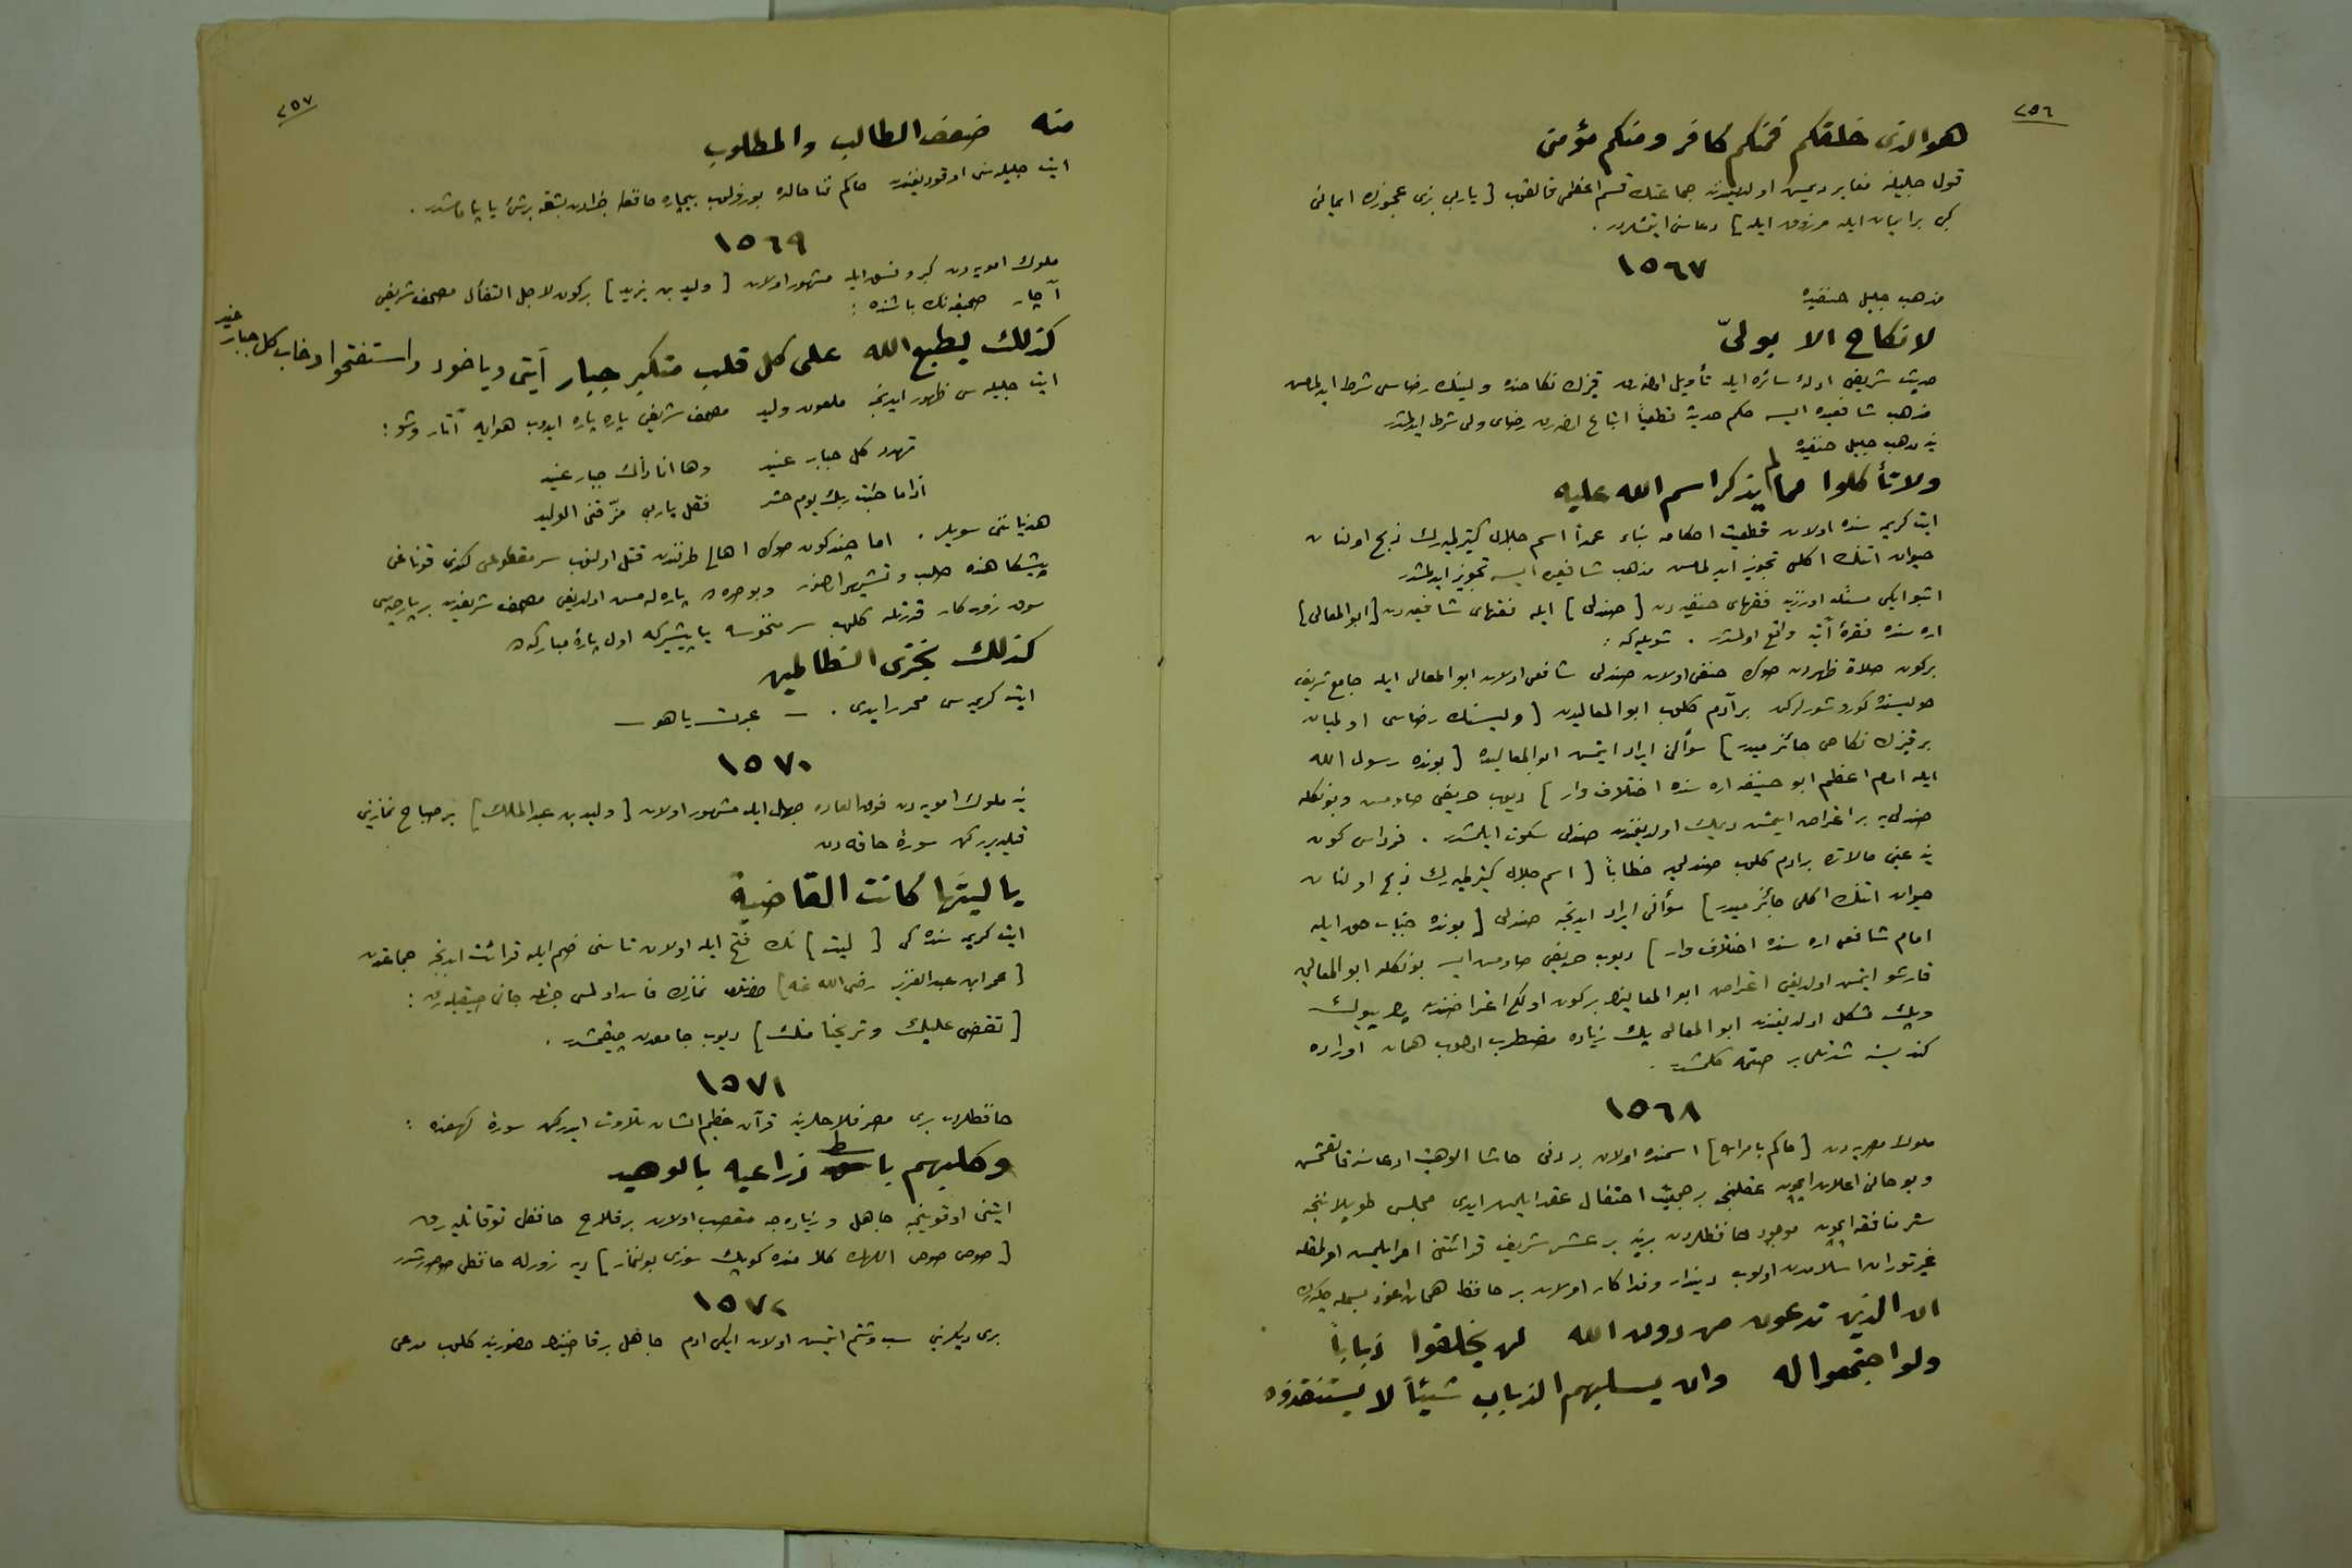 ٢٥٦
هو الذى خلقكم فمنكم كافر ومنكم مؤمن
قول جليلنه مغاير ديمش اولديغندن جماعتك قسم اعظمى قالقوب [ ياربى بزى عجوزك ايمانى
كبى بر ايمان ايله مرزوق ايله ] دعاسنى ايتمشلردر .
١٥٦٧
مذهب جليل حنفيده
لا نكاح الا بولىّ
حديث شريفى ادلهٔ سائره ايله تأويل اولنه‌رق قيزك نكاحنده ولينك رضاسى شرط ايدلمامش
مذهب شافعيده ايسه حكم حديثه قطعياً اتباع اولنه‌رق رضاى ولى شرط ايدلمشدر
ينه مذهب جليل حنفيده
ولا تأكلوا مما لم يذكر اسم الله عليه
ايت كريمه سنده اولان قطعيت احكامه بناء عمداً اسم جلال كتيرلميه‌رك ذبح اولنان
حيوان اتنك اكلى تجويز ايدلمامش مذهب شافعيده ايسه تجويز ايدلمشدر
اشبو ايكى مسئله اوزرينه فقهاى حنفيه‌دن [ صندلى ] ايله فقهاى شافعيه‌دن [ ابو المعالى ]
اره سنده فقرهٔ آتيه واقع اولمشدر . شويله كه :
بركون صلاة ظهردن صوكره حنفى اولان صندلى شافعى اولان ابو المعالى ايله جامع شريف
حوليسنده كوروشورلركن بر آدم كلوب ابو المعاليدن [ وليسنك رضاسى اولميان
بر قيزك نكاحى جائز ميدر ] سؤالنى ايراد ايتمش ابو المعاليده [ بونده رسول الله
ايله امام اعظم ابو حنيفه اره سنده اختلاف وار ] ديوب حريفى صاومش وبونكله
صندلى‌يه بر اعتراض ايتمش ديمك اولديغندن صندلى سكوت ايلمشدر . فرداسى كون
ينه عينى حالاتده بر ادم كلوب صندلى‌يه خطاباً [ اسم جلال كتيرلميه‌رك ذبح اولنان
حيوان اتنك اكلى جائز ميدر ] سؤالنى ايراد ايدنجه صندلى [ بونده جناب حق ايله
امام شافعى اره سنده اختلاف وار ] ديوب حريفى صاومش ايسه بونكله ابو المعالى‌يه
قارشو ايتمش اولديغى اعتراض ابو المعالينك بركون اولكى اعتراضندن پك بيوك
وپك مشكل اولديغندن ابو المعالى پك زياده مضطرب اولوب همان اوراده
كندينه شدتلى بر صتمه كلمشدر .
١٥٦٨
ملوك مصريه‌دن [ حاكم بامرالله ] اسمنده اولان بر دنى حاشا الوهيت ادعاسنه قالقمش
وبو حالنى اعلان ايچون عقلنجه بر جمعيت احتفال عقد ايلمش ايدى مجلس طوپلاننجه
موجود حافظلردن برينه بر عشر شريف قرائتنى امر ايلمش اولمغله
اولوب ديندار وفداكار اولان بر حافظ همان اعوذ بسمله چكه‌رك
ان الذين تدعون من دون الله لن يخلقوا ذباباً
ولو اجتمعوا له وان يسلبهم الذباب شيئاً لا يستنقذوه
٢٥٧
منه ضعف الطالب والمطلوب
ايت جليله سنى اوقوديغندن حاكم فنا حالده بوزولوب بيچاره حافظه بشقه برشئ ياپامامشدر .
١٥٦٩
ملوك امويه‌دن كبر وفسق ايله مشهور اولان [ وليد بن يزيد ] بركون لاجل التفأل مصحف شريفى
آچار صحيفه‌نك باشنده :
كذلك يطبع الله على كل قلب متكبر جبار آيتى وياخود واستفتحوا وخاب كل جبار عنيد
ايت جليله سى ظهور ايدنجه ملعون وليد مصحف شريفى پاره پاره ايدوب هوايه آتار وشو :
تهدد كل جبار عنيد وها انا ذاك جبار عنيد
اذا ما جئت ربك يوم حشر فقل يارب مزّقنى الوليد
هذياننى سويلر . اما چند كون صوكره اهالى طرفندن قتل اولنوب سر مقطوعى كندى قوناغى
پيشكاهنده صلب وتشهير اولنور وبوصره‌ده پاره لمش اولديغى مصحف شريفدن بر پارچه‌سى
سوق روزكار قدرتله كلوب سر منحوسه ياپيشير كه اول پارهٔ مباركه‌ده
كذلك نجزى الظالمين
ايت كريمه سى محرر ايدى . — عبرت ياهو —
١٥٧٠
ينه ملوك امويه‌دن فوق العاده جهل ايله مشهور اولان [ وليد بن عبد الملك ] بر صباح نمازينى
قيلديرركن سورهٔ حاقه‌دن
يا ليتَها كانت القاضية
ايت كريمه سنده كى [ ليت ] نك فتح ايله اولان تاسنى ضم ايله قرائت ايدنجه جماعتدن
[ عمر ابن عبد العزيز رضى الله عنه ] حضرتلرى نمازك فاسد اولمسى جهتله جانى صيقيله‌رق :
[ تقضى عليك وتريحنا منك ] ديوب جامعدن چيقمشدر .
١٥٧١
حافظلردن برى مصر فلاحلرينه قرآن عظيم الشان تلاوت ايدركن سورهٔ كهفده :
وكلبهم باسط ذراعيه بالوصيد
ايتنى اوقوينجه جاهل وزياده‌جه متعصب اولان بر فلاح حافظى توقاتليه‌رق
[ صوص صوص اللهك كلامنده كوپك سوزى بولنماز ] ديه زورله حافظى صوصديرمشدر
١٥٧٢
برى ديكرينى سب وشتم ايتمش اولان ايكى ادم جاهل بر قاضينك حضورينه كلوب مدعى